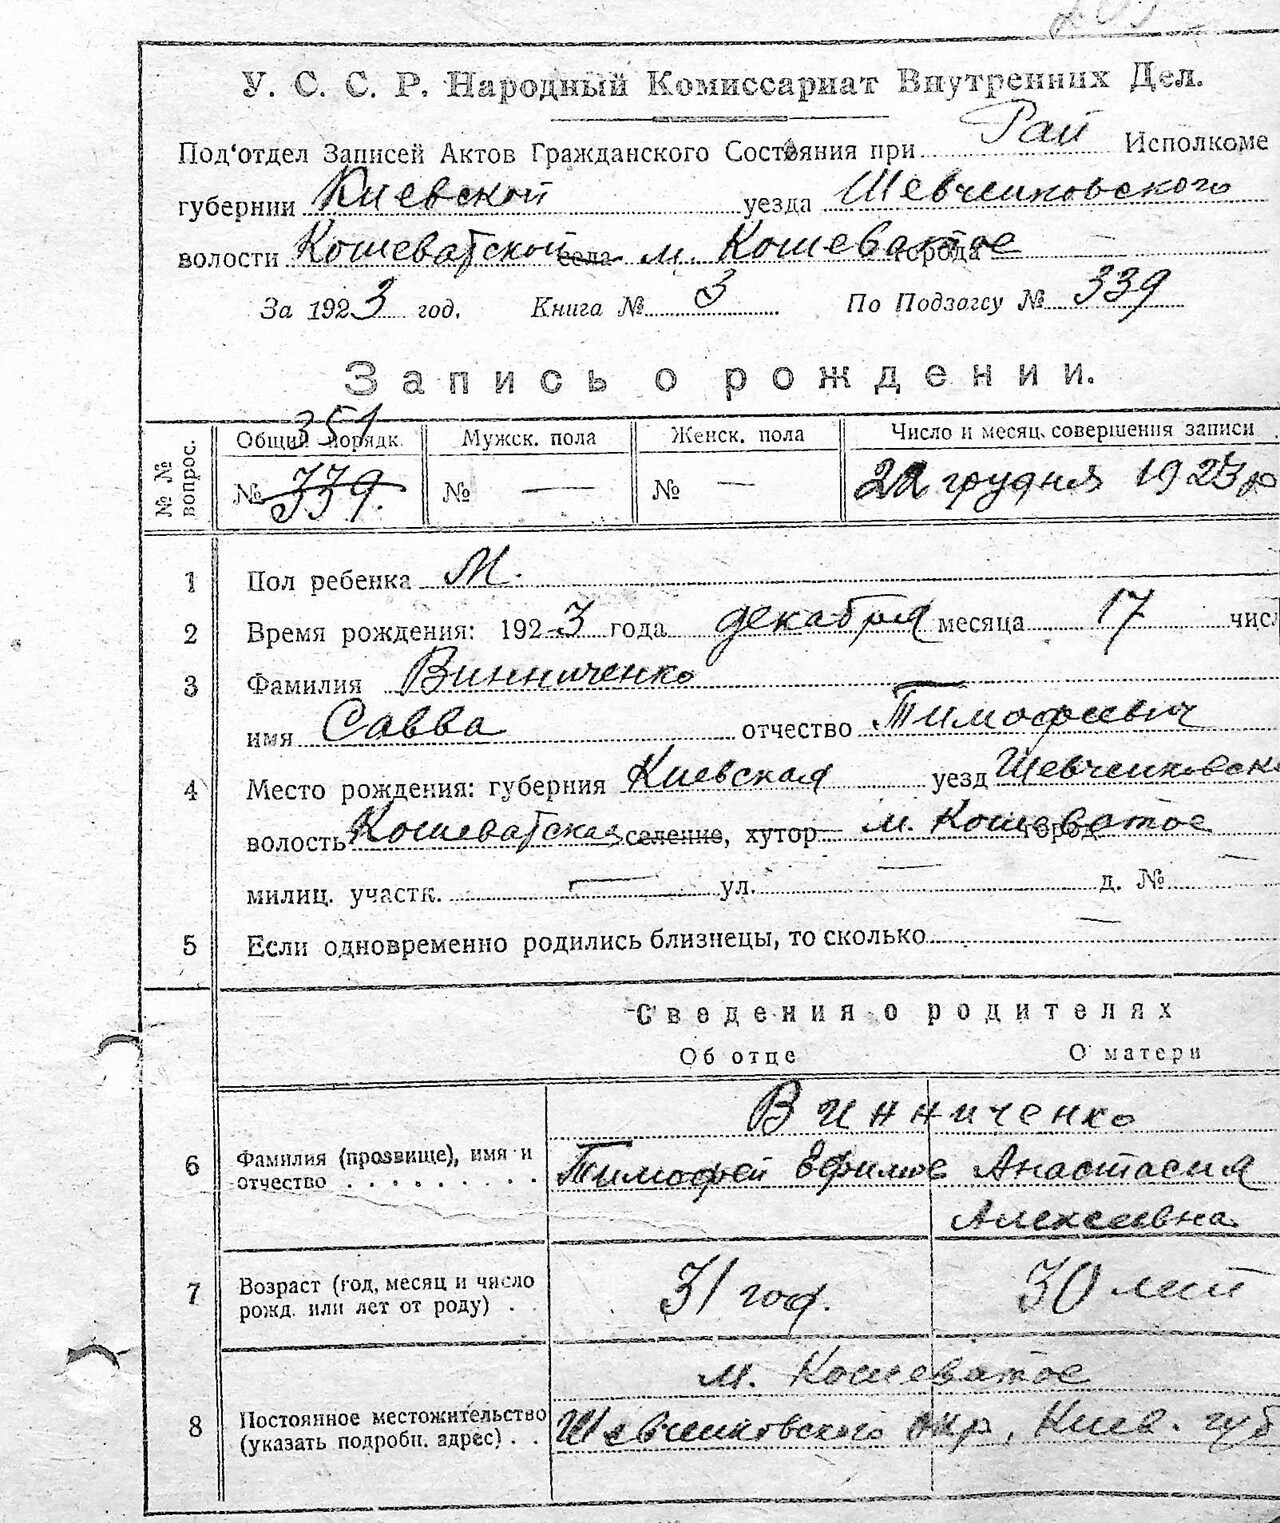 У. С. С. Р. Народный Комиссариат Внутренних Дел.
Под'отдел Записей Актов Гражданского Состояния при Рай Исполкоме
губернии Киевской уезда Шевченковского
волости Кошеватской села м. Кошеватое города —
За 1923 год. Книга № 3 По Подзагсу № 339
Запись о рождении.
№ № вопрос.
351
Общий порядк. Мужск. пола Женск. пола Число и месяц совершения записи
№ 339. № — № — 22 грудня 1923 р
1 Пол ребенка М.
2 Время рождения: 1923 года декабря месяца 17 числ
3 Фамилия Винниченко
имя Савва отчество Тимофеевич
4 Место рождения: губерния Киевская уезд Шевченковск
волость Кошеватская селение, хутор м. Кошеватое город
милиц. участк. — ул. — д. № —
5 Если одновременно родились близнецы, то сколько —
Сведения о родителях
Об отце О матери
Винниченко
6 Фамилия (прозвище), имя и Тимофей Ефимов Анастасия
отчество . . . . . . . . . Алексеевна
7 Возраст (год, месяц и число 31 год. 30 лет
рожд. или лет от роду) . .
м. Кошеватое
8 Постоянное местожительство Шевченковского окр, Киев. губ
(указать подробн. адрес) . .